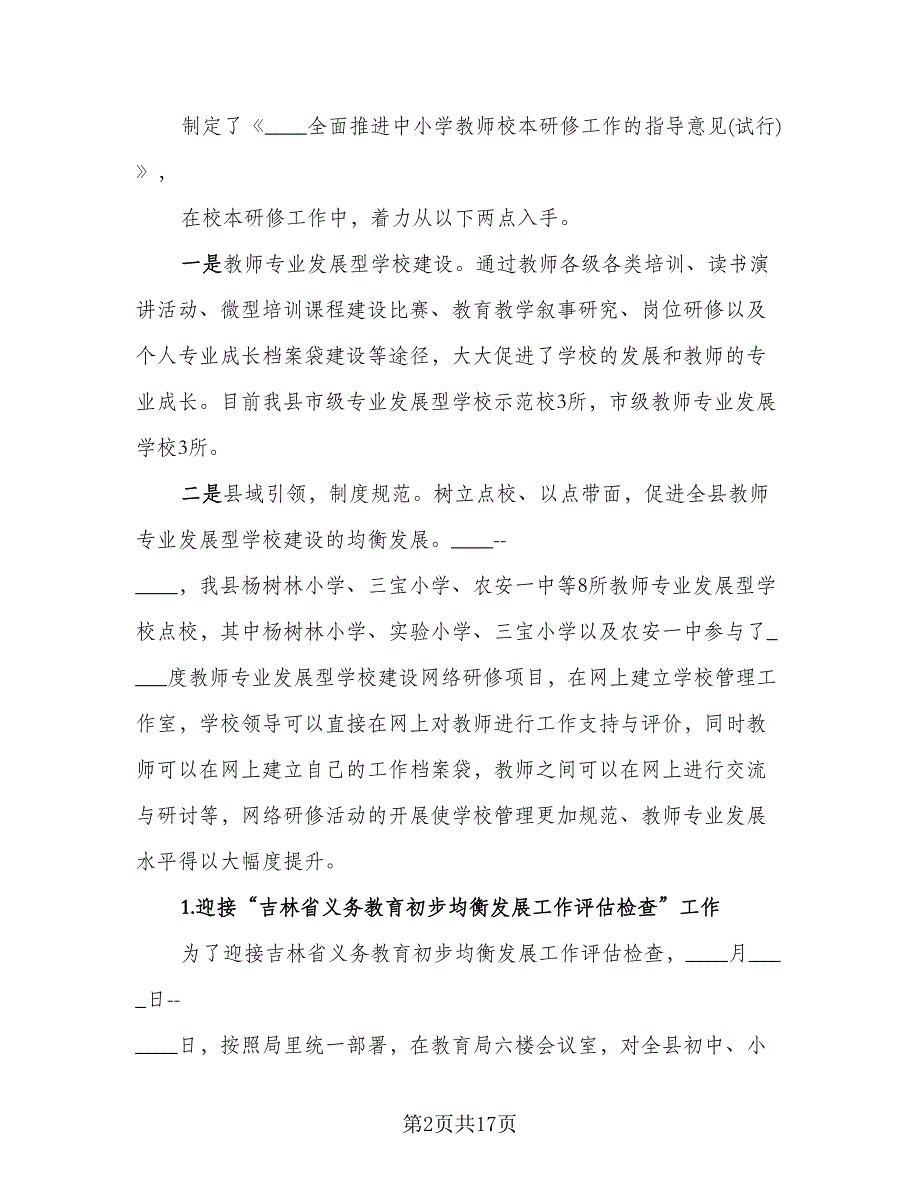 制定了《____全面推进中小学教师校本研修工作的指导意见(试行)
》，
在校本研修工作中，着力从以下两点入手。
一是教师专业发展型学校建设。通过教师各级各类培训、读书演
讲活动、微型培训课程建设比赛、教育教学叙事研究、岗位研修以及
个人专业成长档案袋建设等途径，大大促进了学校的发展和教师的专
业成长。目前我县市级专业发展型学校示范校3所，市级教师专业发展
学校3所。
二是县域引领，制度规范。树立点校、以点带面，促进全县教师
专业发展型学校建设的均衡发展。____--
____，我县杨树林小学、三宝小学、农安一中等8所教师专业发展型学
校点校，其中杨树林小学、实验小学、三宝小学以及农安一中参与了_
___度教师专业发展型学校建设网络研修项目，在网上建立学校管理工
作室，学校领导可以直接在网上对教师进行工作支持与评价，同时教
师可以在网上建立自己的工作档案袋，教师之间可以在网上进行交流
与研讨等，网络研修活动的开展使学校管理更加规范、教师专业发展
水平得以大幅度提升。
1.迎接“吉林省义务教育初步均衡发展工作评估检查”工作
为了迎接吉林省义务教育初步均衡发展工作评估检查，____月___
_日--
____日，按照局里统一部署，在教育局六楼会议室，对全县初中、小
第2页共17页